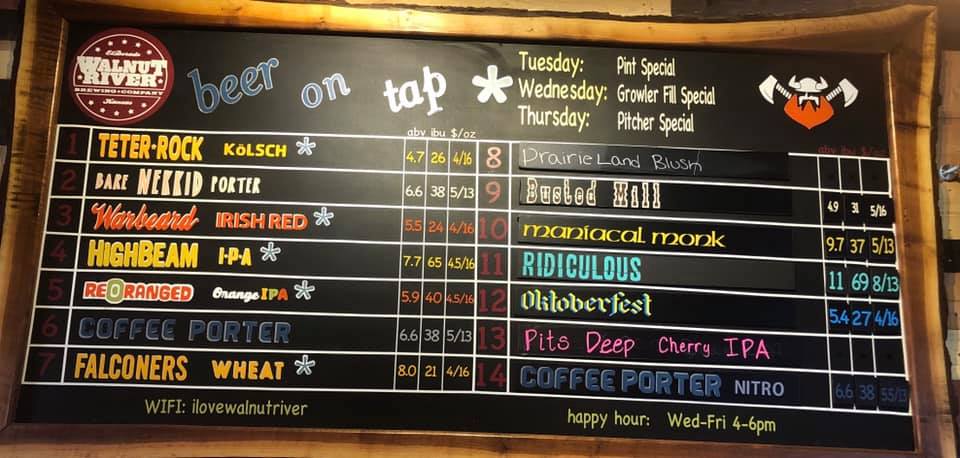 ElDorado
WALNUT
RIVER
BREWING COMPANY
Kansas
beer on tap *
Tuesday: Pint Special
Wednesday: Growler Fill Special
Thursday: Pitcher Special
abv ibu $/oz
1 TETER·ROCK KöLSCH * 4.7 26 4/16
2 BARE NEKKID PORTER 6.6 38 5/13
3 Warbeard IRISH RED * 5.5 24 4/16
4 HIGHBEAM I·P·A * 7.7 65 4.5/16
5 REORANGED Orange IPA * 5.9 40 4.5/16
6 COFFEE PORTER 6.6 38 5/13
7 FALCONERS WHEAT * 8.0 21 4/16
abv ibu $/oz
8 Prairie Land Blush
9 Busted Mill 4.9 31 5/16
10 maniacal monk 9.7 37 5/13
11 RIDICULOUS 11 69 8/13
12 Oktoberfest 5.4 27 4/16
13 Pits Deep Cherry IPA
14 COFFEE PORTER NITRO 6.6 38 5.5/13
WIFI: ilovewalnutriver
happy hour: Wed-Fri 4-6pm